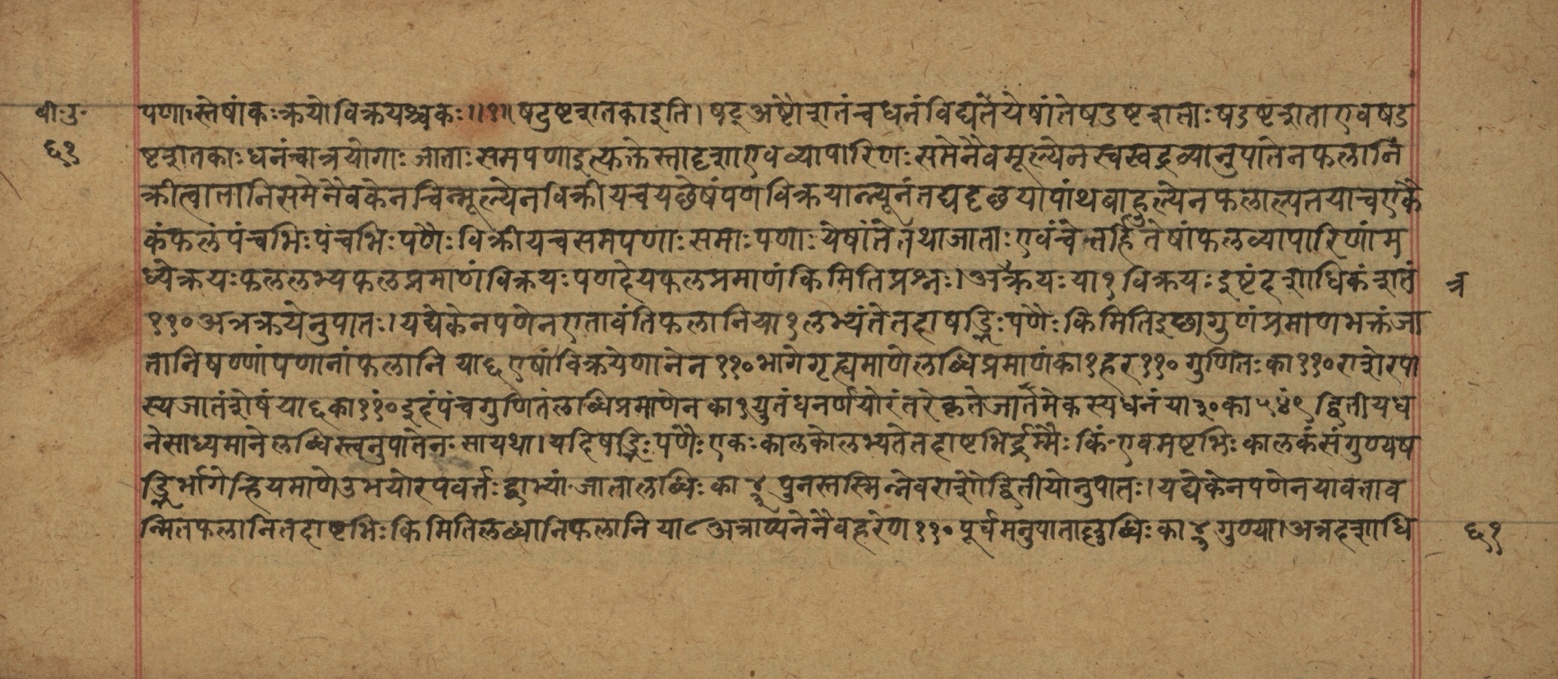 बी॰उ॰
६१
पणास्तेषांकःक्रयोविक्रयश्चकः॥१॥षडष्टशतकाइति।षट्अष्टौशतंचधनंविद्यतेयेषांतेषडष्टशताःषडष्टशताएवषड
ष्टशतकाःधनंचात्रयोगाःजाताःसमपणाइत्युक्तेस्तादृशाएवव्यापारिणःसमेनैवमूल्येनस्वस्वद्रव्यानुपातेनफलानि
क्रीत्वातानिसमेनैवकेनचिन्मूल्येनविक्रीयचयछेषंपणविक्रयान्त्यूनंतद्यदृछयापांथबाहुल्येनफलाल्पतयाचएकै
कंफलंपंचभिःपंचभिःपणैःविक्रीयचसमपणाःसमाःपणाःयेषांतेतथाजाताःएवंचेत्तर्हितेषांफलव्यापारिणांम
ध्येक्रयःफललभ्यफलप्रमाणंविक्रयःपणदेयफलप्रमाणंकिमितिप्रश्नः।अत्रक्रयःया१विक्रयःइष्टंदशाधिकंशतं
११०अत्रक्रयेनुपातः।यद्येकेनपणेनएतावंतिफलानिया१लभ्यंतेतदाषड्भिःपणैःकिमितिइछागुणंप्रमाणभक्तंजा
तानिषण्णांपणानांफलानिया६एषांविक्रयेणानेन११०भागेगृह्यमाणेलब्धिप्रमाणंका१हर११०गुणितःका११०राशेरपा
स्यजातंशेषंया६का११०इदंपंचगुणितंलब्धिप्रमाणेनका१युतंधनर्णयोरंतरेकृतेजातमेकस्यधनंया३०का५४९द्वितीयध
नेसाध्यमानेलब्धिस्त्वनुपातेनःसायथा।यदिषड्भिःपणैःएकःकालकोलभ्यतेतदाष्टभिर्द्रम्मैःकिंएवमष्टभिःकालकंसंगुण्यष
ड्भिर्भागेन्हियमाणेउभयोरपवर्तःद्वाभ्यांजातालब्धिःका४३पुनस्तस्मिन्नेवराशौद्वितीयोनुपातः।यद्येकेनपणेनयावत्ताव
न्मितफलानितदाष्टभिःकिमितिलब्धानिफलानिया८अत्राप्यनेनैवहरेण११०पूर्वमनुपाताल्लब्धिःका४३गुण्या।अत्रदशाधि
त्र
६१